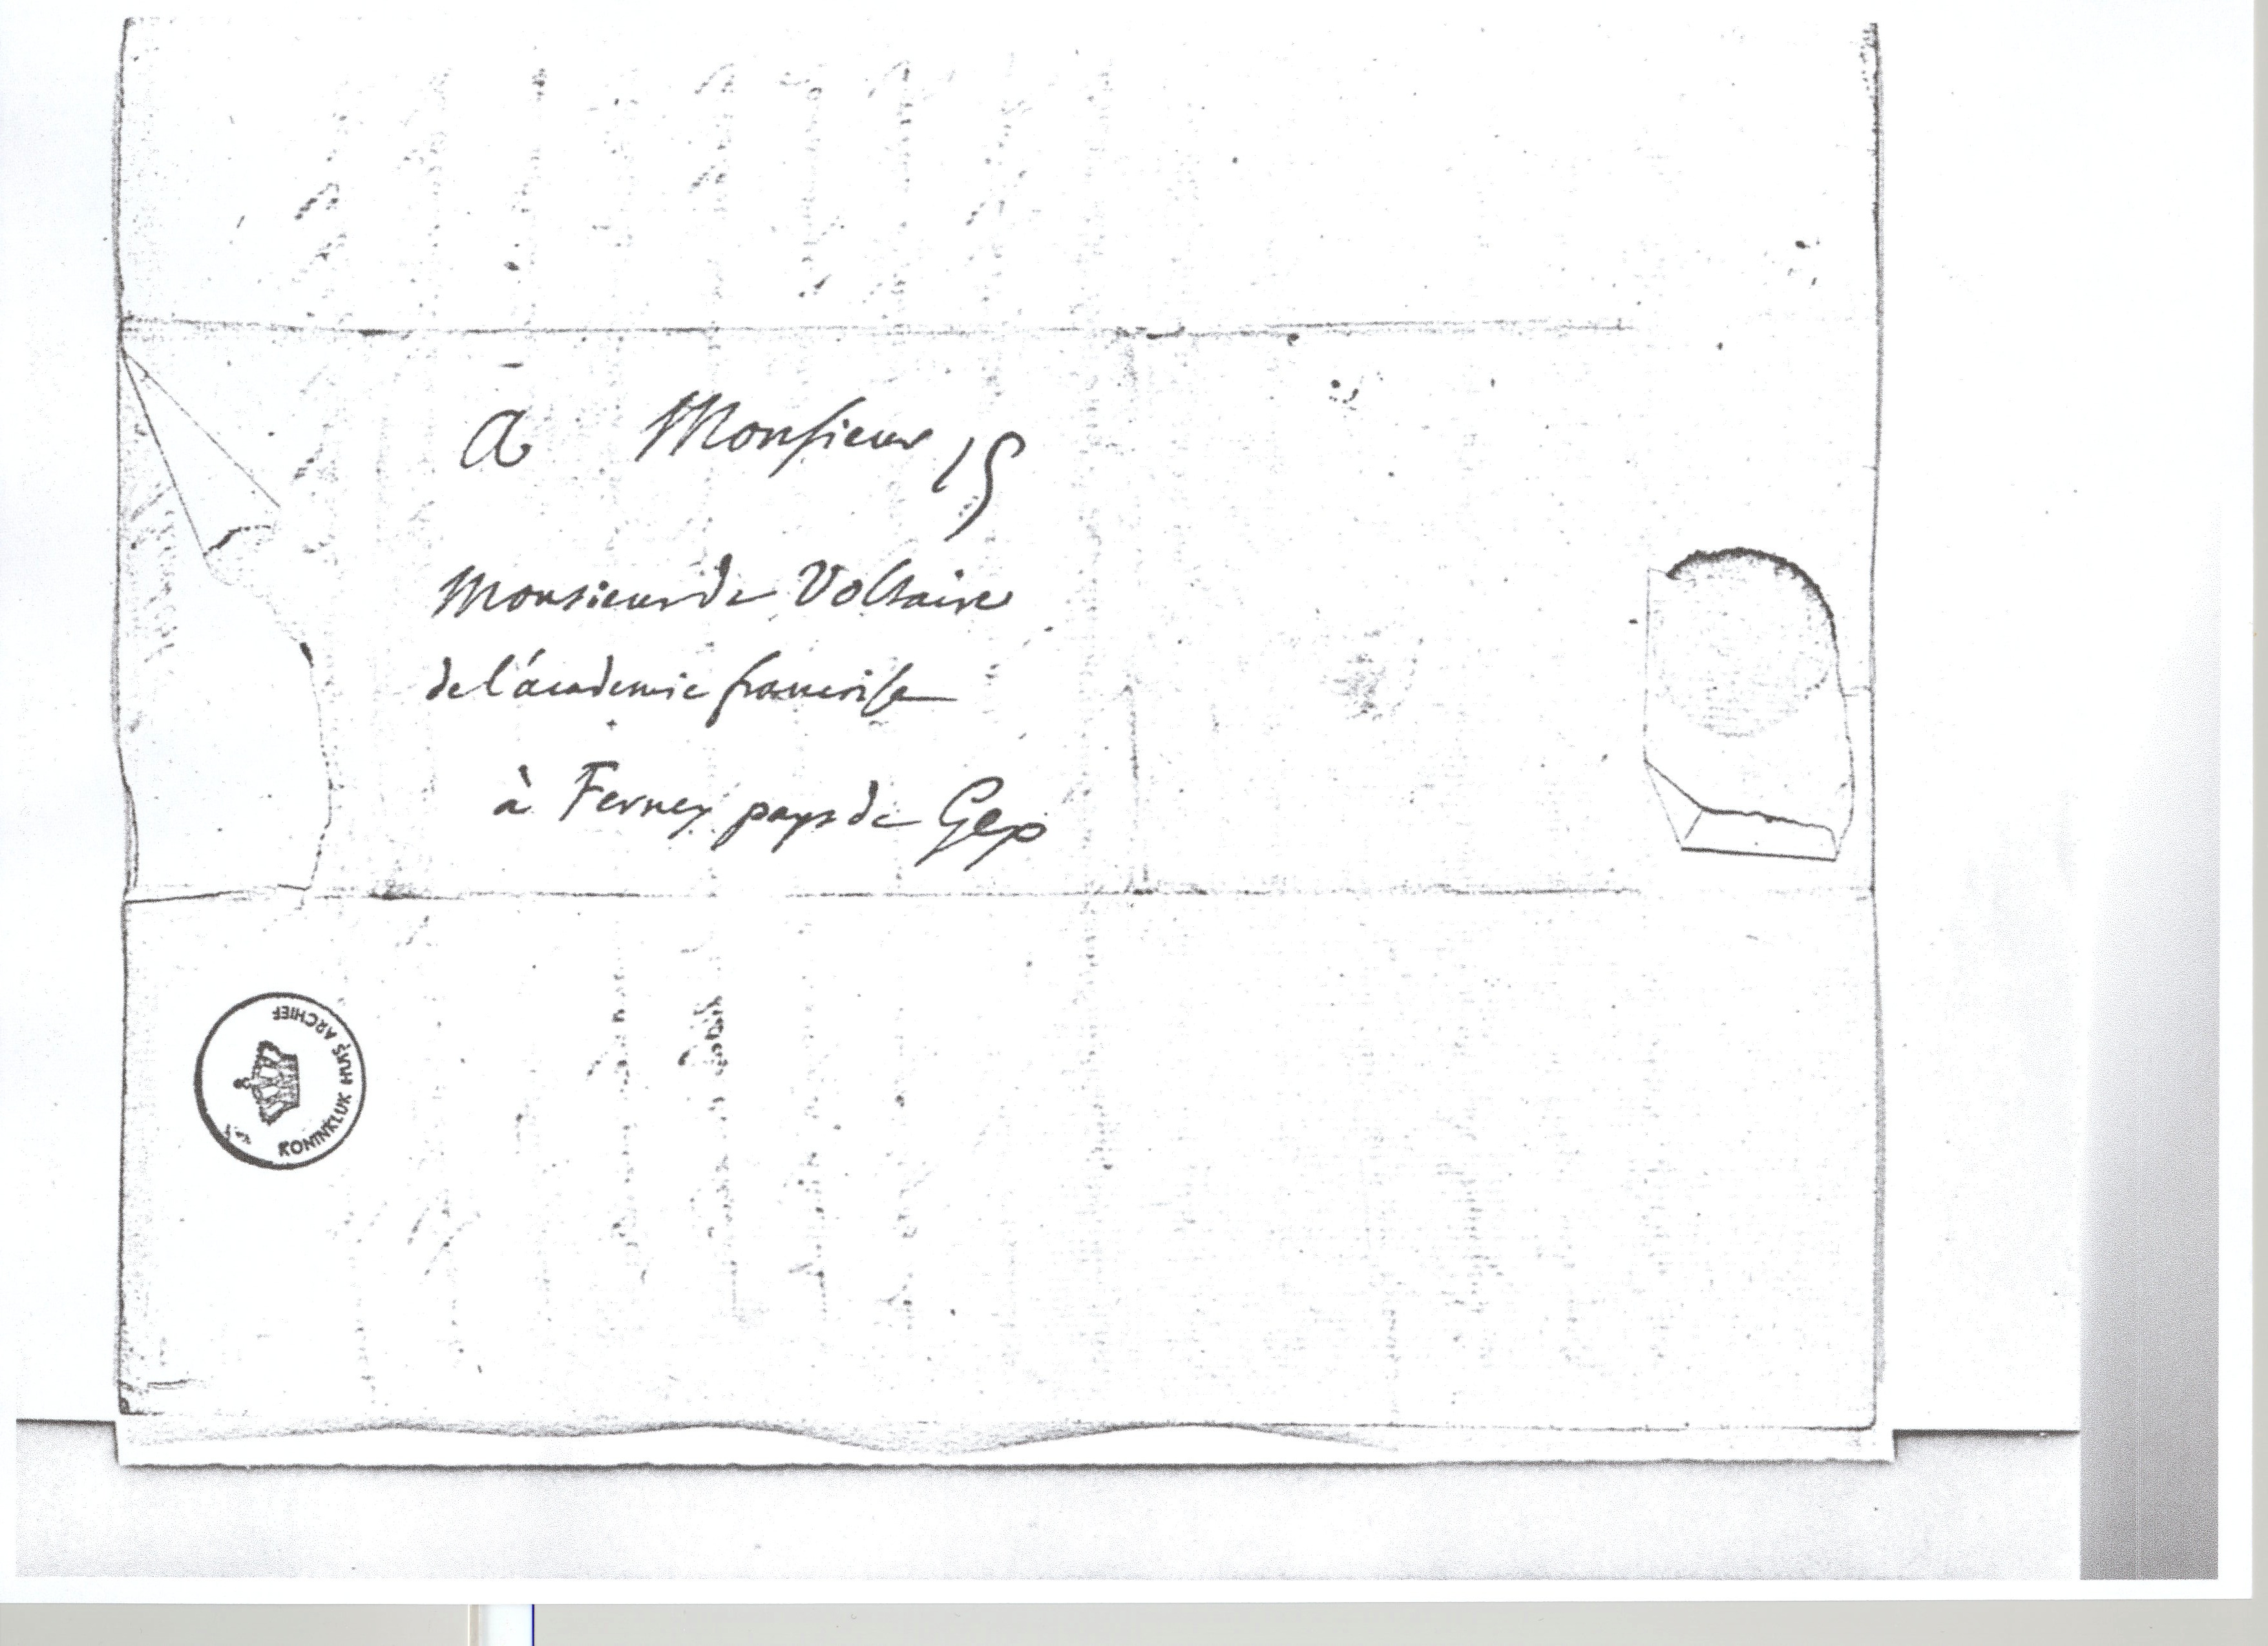 A Monsieur 15
Monsieur de Voltaire
de l'academie francoise
à Ferney pays de Gex
KONINKLIJK HUIS ARCHIEF